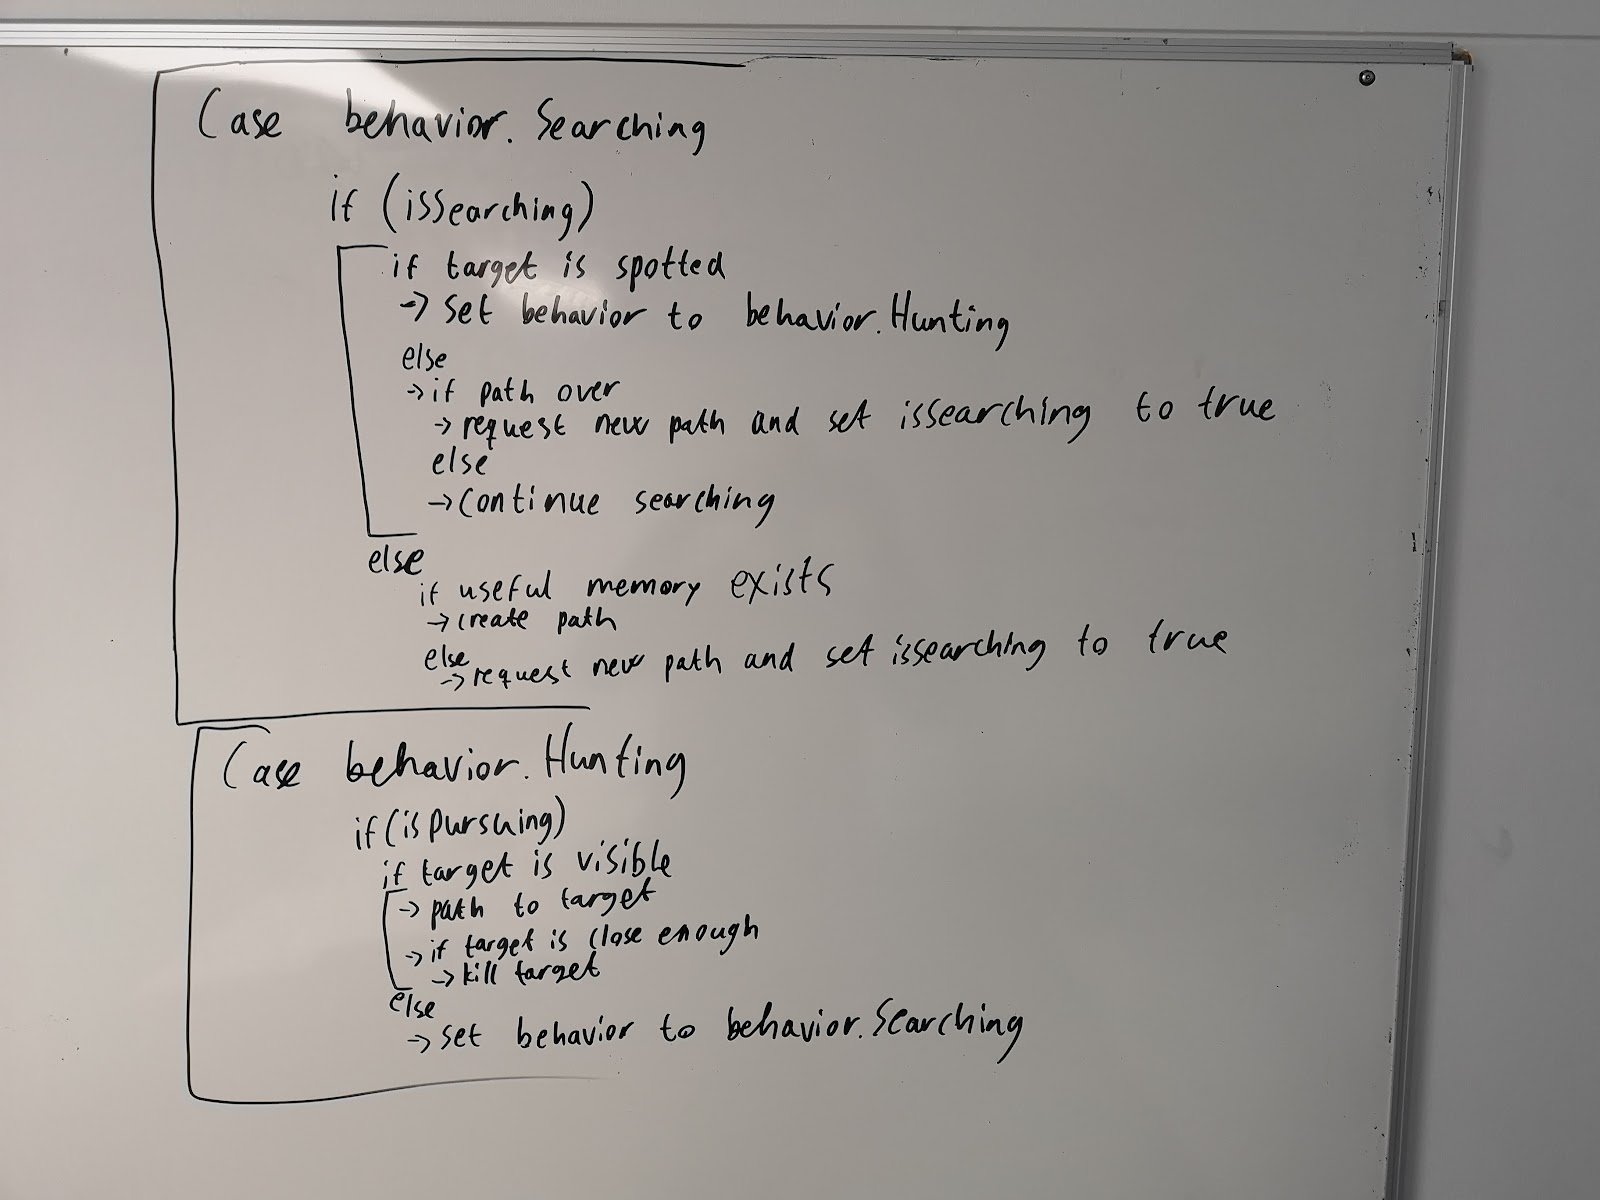 Case behavior.Searching
if (isSearching)
if target is spotted
→ set behavior to behavior.Hunting
else
→ if path over
→ request new path and set issearching to true
else
→ continue searching
else
if useful memory exists
→ create path
else
→ request new path and set issearching to true
Case behavior.Hunting
if (ispursuing)
if target is visible
→ path to target
→ if target is close enough
→ kill target
else
→ set behavior to behavior.Searching